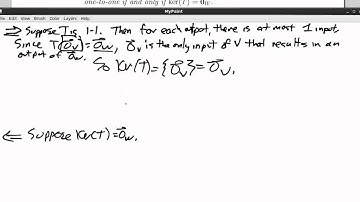 one-to-one if and only if ker(T) = 0_W.
MyPaint
⇒ Suppose T is 1-1. Then for each output, there is at most 1 input.
Since T(0⃗_V)=0⃗_W, 0⃗_V is the only input of V that results in an
output of 0⃗_W.
So Ker(T)={0⃗_V}=0⃗_V.
⇐ Suppose Ker(T)=0⃗_W.